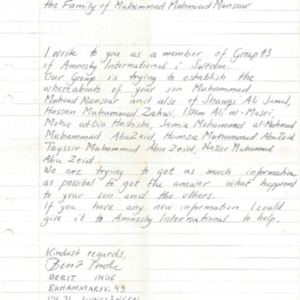 the Family of Muhammad Mahmoud Mansour
I write to you as a member of Group 93
of Amnesty International i Sweden.
Our Group is trying to establish the
whereabouts of your son Muhammad
Mahoud Mansour and also of Shawgi Ali Jamal,
Hassan Muhammad Zahwi, Issam Ali al-Masri,
Metwa ad-Din Hashasho, Jamia Mohammed al-Mahmoud
Muhammad AbuZeid, Hamza Muhammad AbuZeid,
Tayssir Muhammad Abu Zeid, Nasser Muhammad
Abu Zeid.
We are trying to get as much information
as possibel to get the answer what happend
to your son and the others.
If you have any new information I could
give it to Amnesty International to help.
Kindest regards,
BERIT INDE
EKHAMMARSV. 43